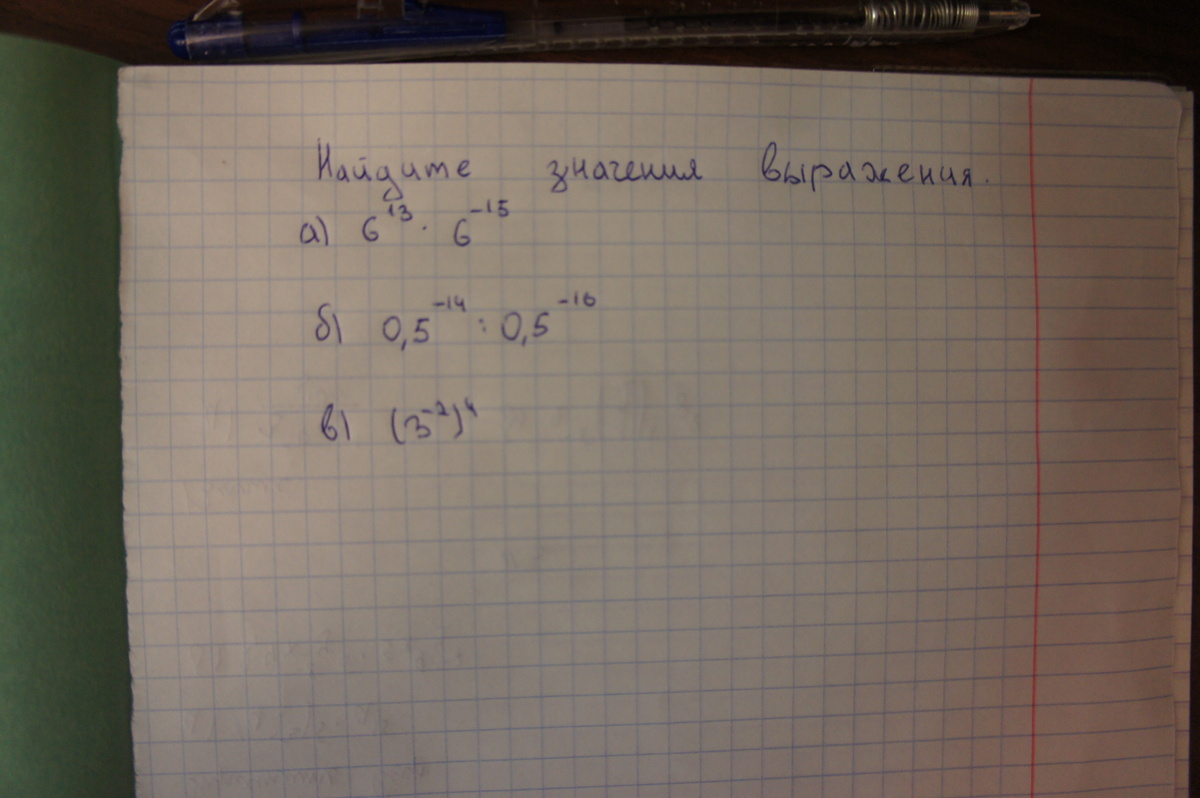 Найдите значения выражения.
а) 6¹³ · 6⁻¹⁵
б) 0,5⁻¹⁴ : 0,5⁻¹⁶
в) (3⁻²)⁴